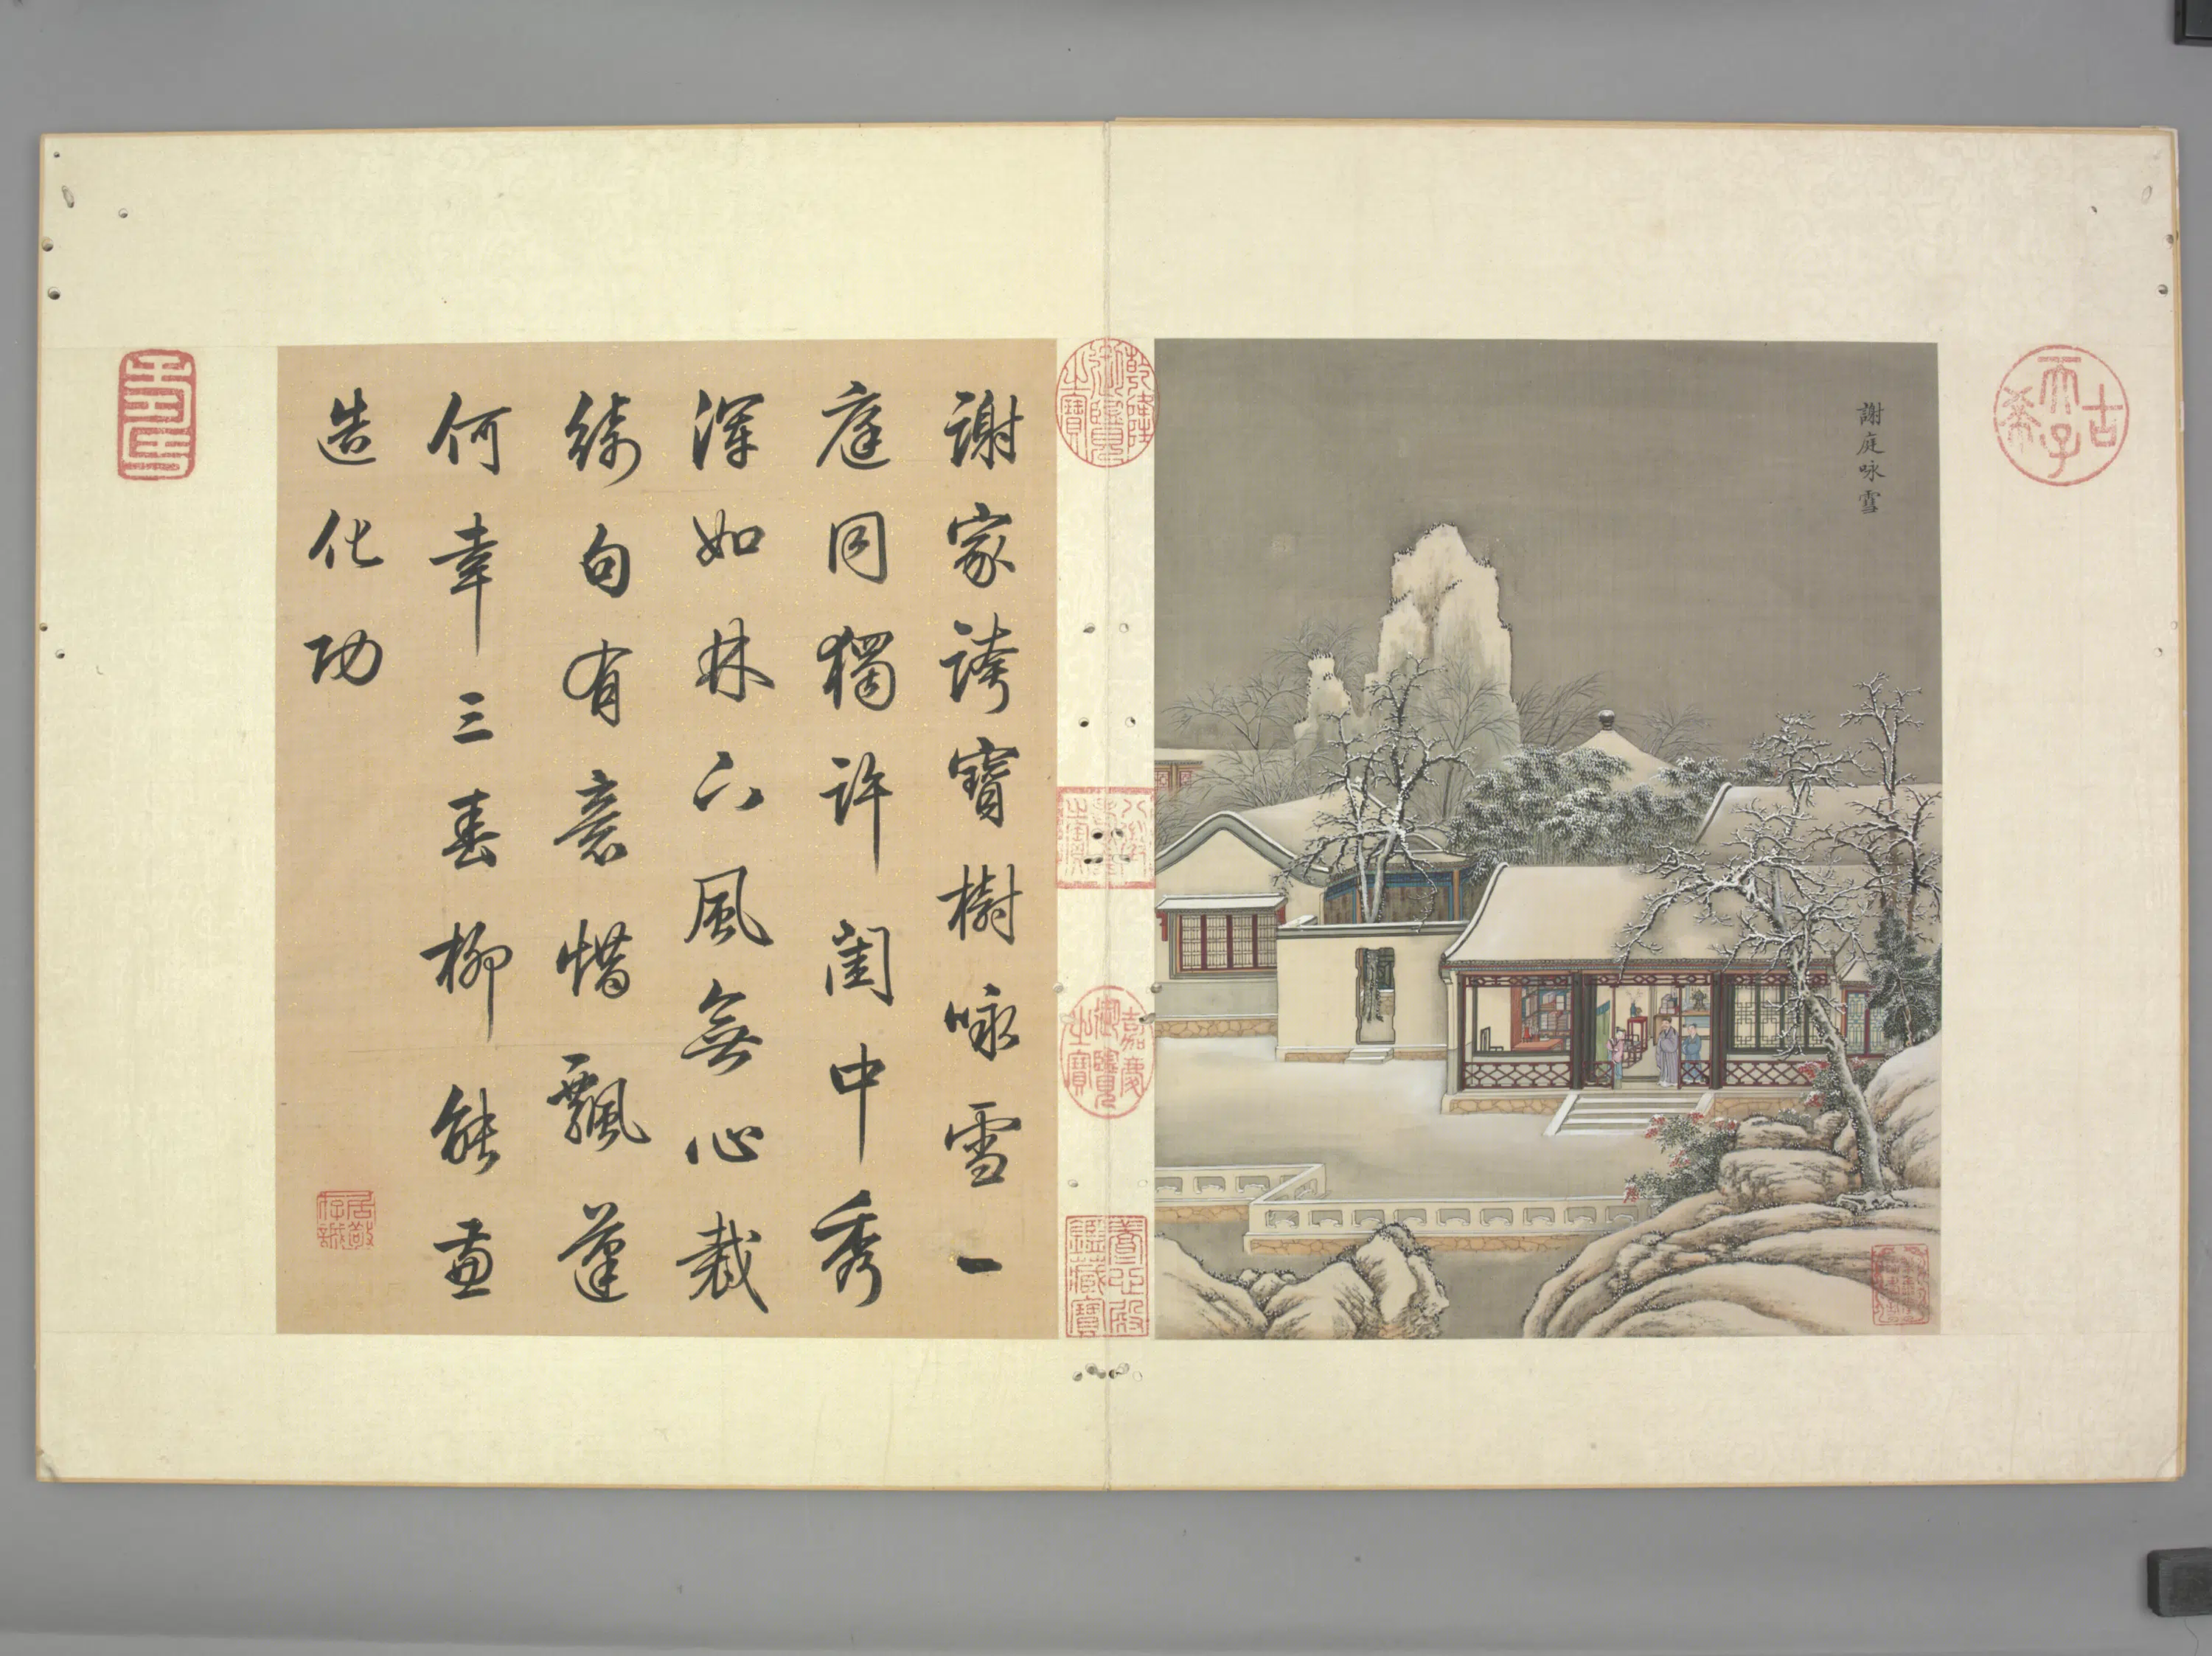 古希天子
謝庭咏雪
乾隆御覽之寶
八徵耄念之寶
嘉慶御覽之寶
養心殿鑑藏寶
謝家誇寶樹咏雪一
庭同獨許閨中秀
渾如林下風無心裁
綺句有意惜飄蓬
何幸三春柳能畫
造化功
居敬存誠
壽